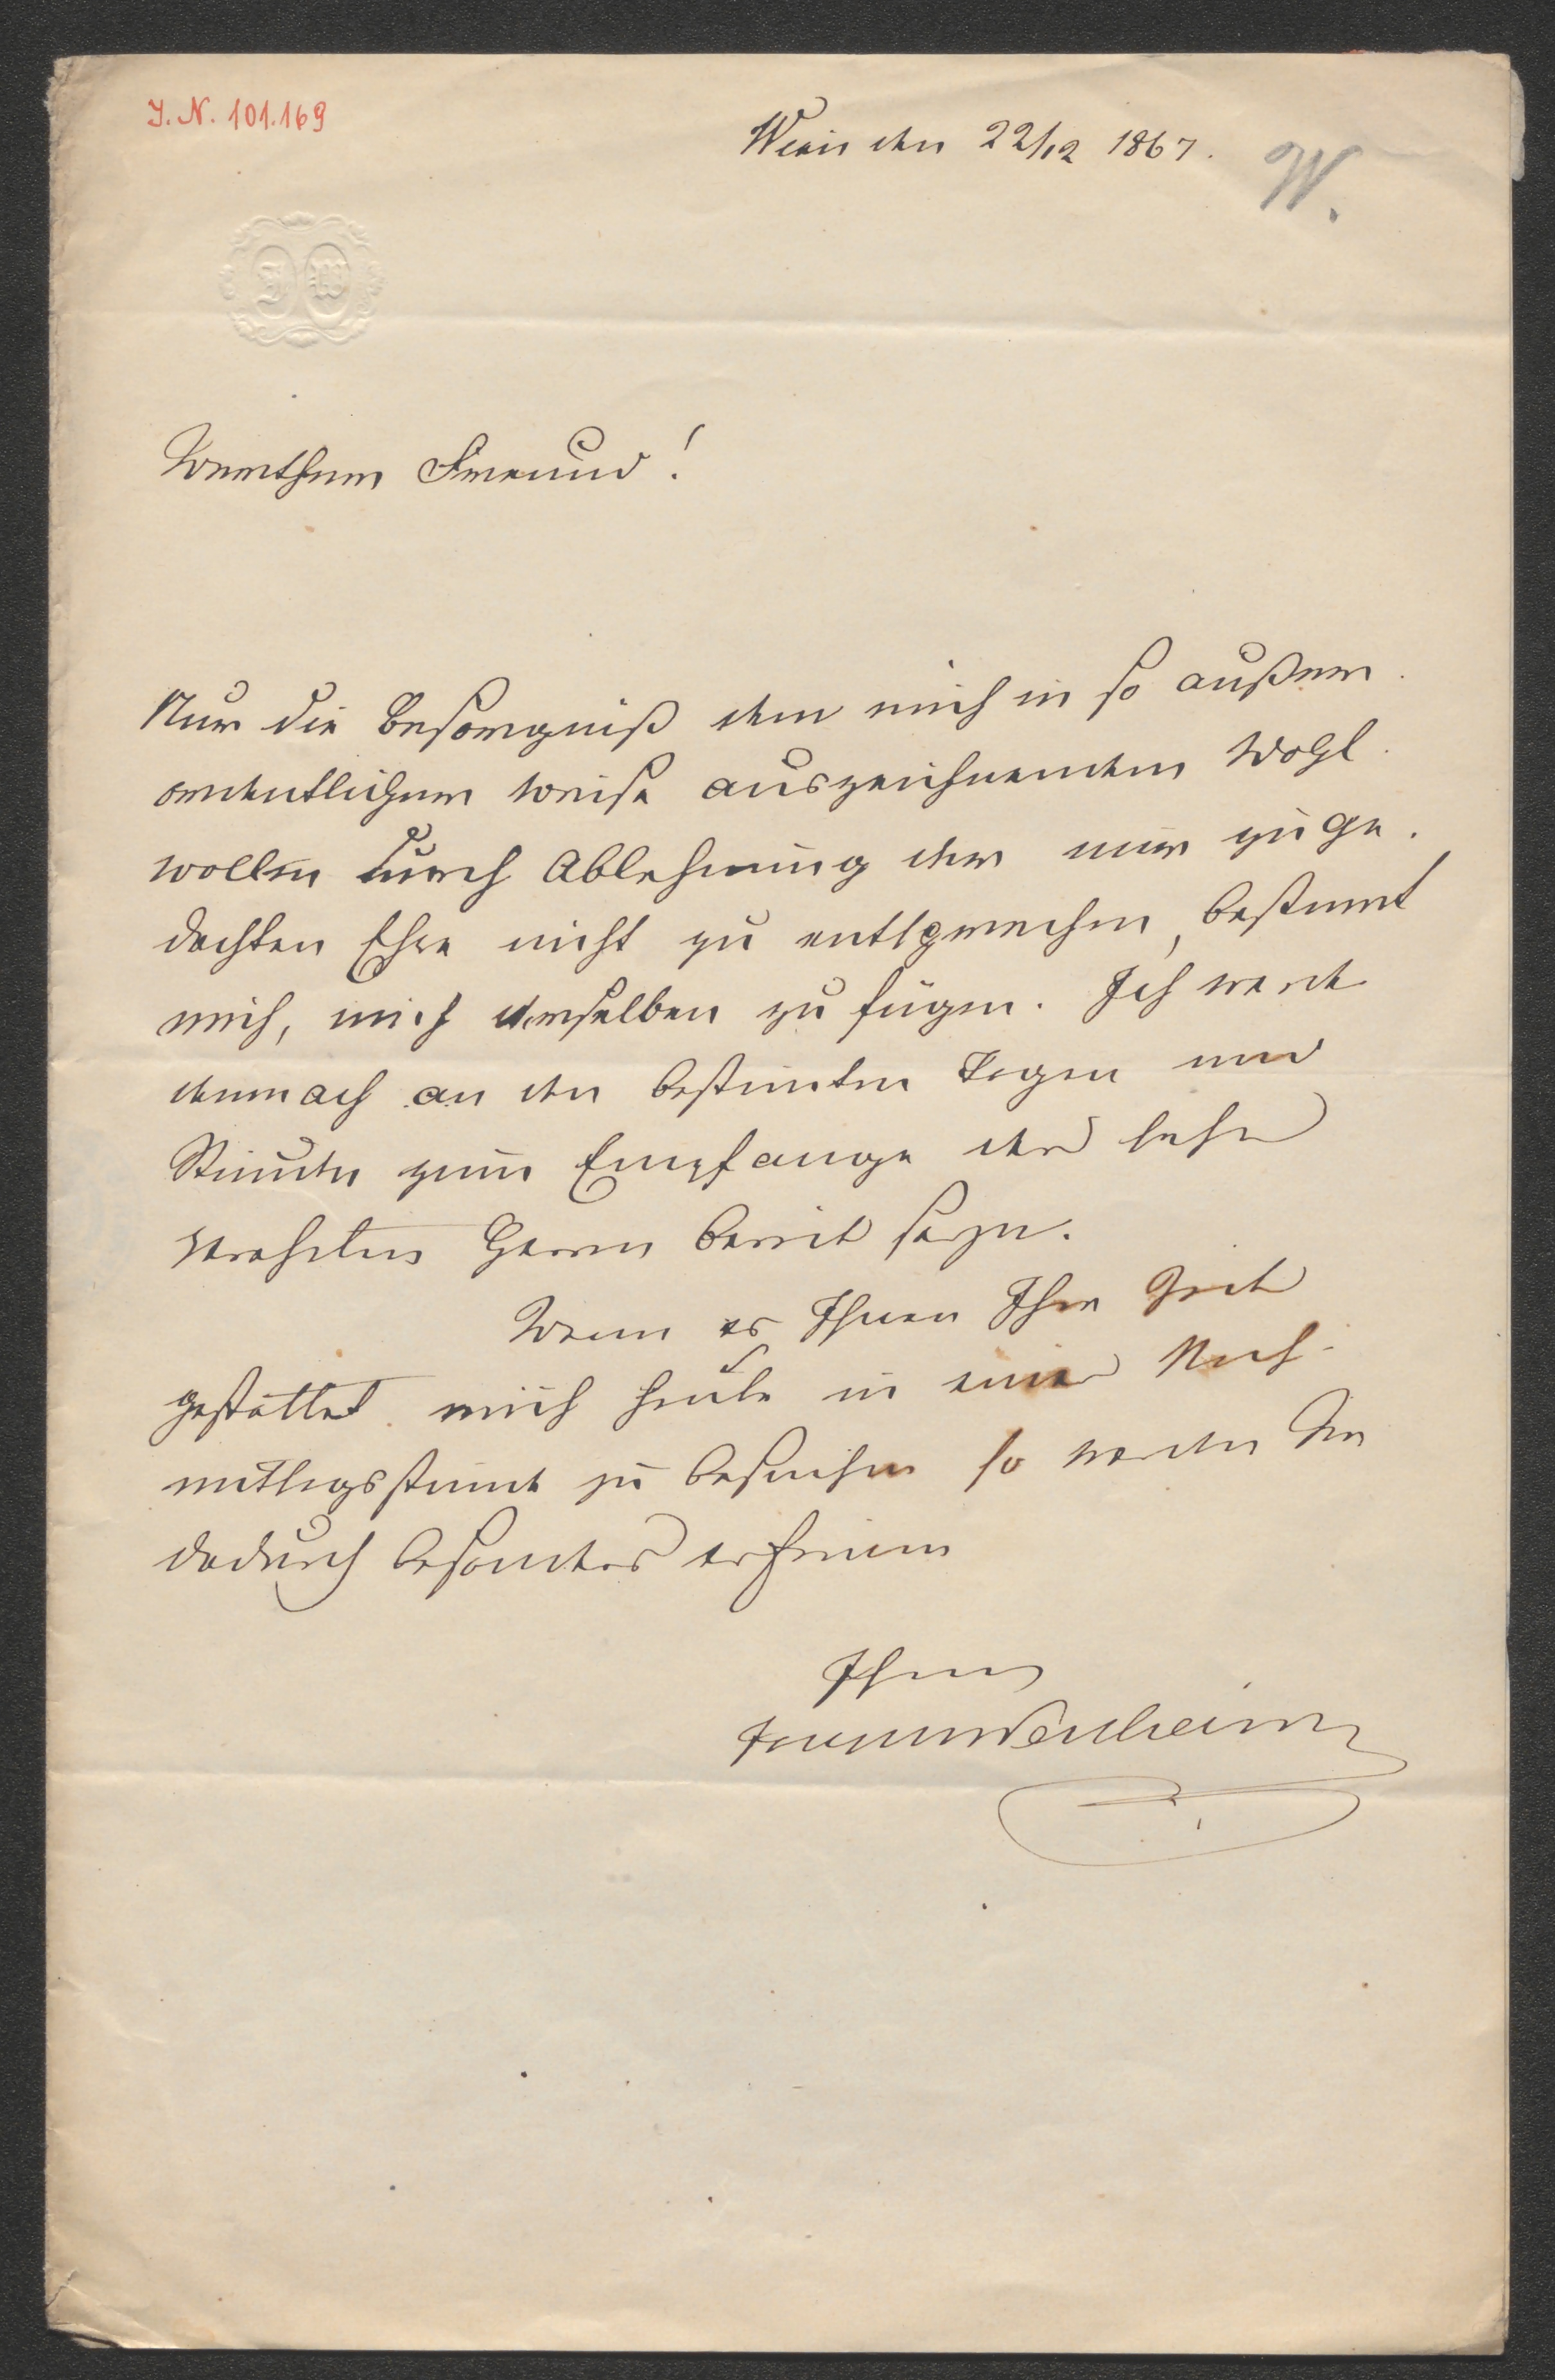 J. N. 101.169
Wien den 22/12 1867.
W.
J W
Werther Freund!
Nur die Besorgniß dem mich in so außer-
ordentlicher Weise auszeichnenden Wohl-
wollen durch Ablehnung der mir zuge-
dachten Ehre nicht zu entsprechen, bestimt
mich, mich derselben zu fügen. Ich werde
demnach an den bestimten Tagen und
Stunden zum Empfange der sehr
verehrten Herrn bereit seyn.
Wenn es Ihnen Ihre Zeit
gestattet mich heute in einer Nach-
mittagsstunde zu besuchen so werden Sie
dadurch besonders erfreuen
Ihren
Wertheim